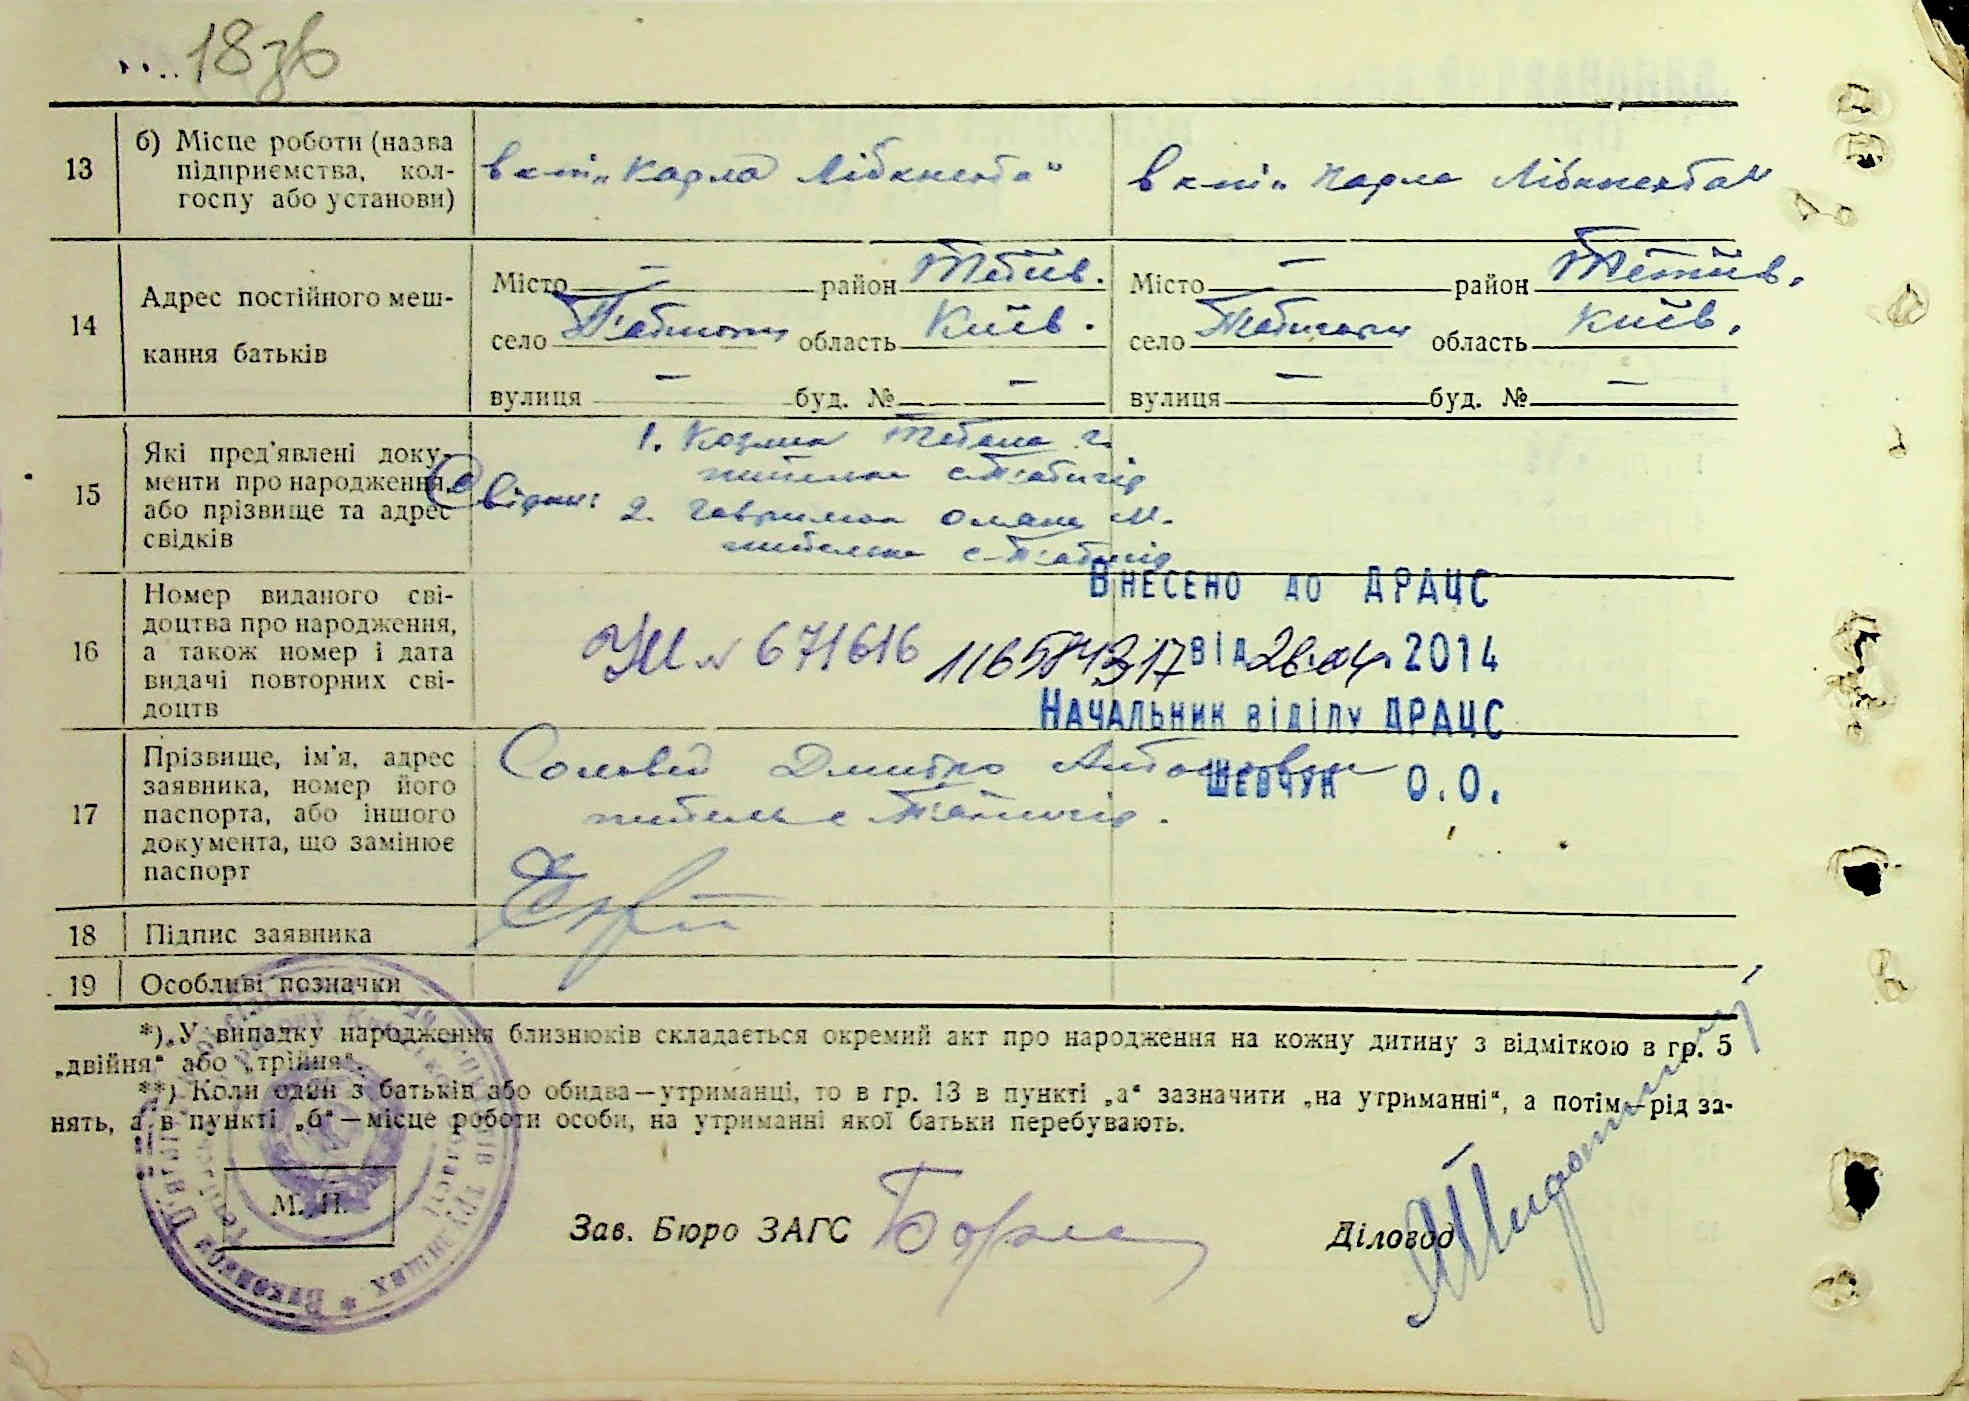 18зв
13
б) Місце роботи (назва
підприємства, кол-
госпу або установи)
в к-пі „Карла Лібкнехта“
в к-пі „Карла Лібкнехта“
14
Адрес постійного меш-
кання батьків
Місто — район Тетіїв.
село П'ятигори область Київ.
вулиця — буд. № —
Місто — район Тетіїв.
село П'ятигори область Київ.
вулиця — буд. № —
15
Які пред'явлені доку-
менти про народження,
або прізвище та адрес
свідків
Свідки:
1. Тетяна Г.
жителька с. П'ятигір
2. Гаврилюк М.
жителька с. П'ятигір
16
Номер виданого сві-
доцтва про народження,
а також номер і дата
видачі повторних сві-
доцтв
№ 671616
Внесено до ДРАЦС
від 2014
Начальник відділу ДРАЦС
Шевчук О.О.
17
Прізвище, ім'я, адрес
заявника, номер його
паспорта, або іншого
документа, що замінює
паспорт
Соловей Дмитро Антонович
житель с. П'ятигір.
18
Підпис заявника
19
Особливі позначки
*) У випадку народження близнюків складається окремий акт про народження на кожну дитину з відміткою в гр. 5
„двійня“ або „трійня“.
**) Коли один з батьків або обидва—утриманці, то в гр. 13 в пункті „а“ зазначити „на утриманні“, а потім—рід за-
нять, а в пункті „б“—місце роботи особи, на утриманні якої батьки перебувають.
М. П.
Зав. Бюро ЗАГС
Діловод